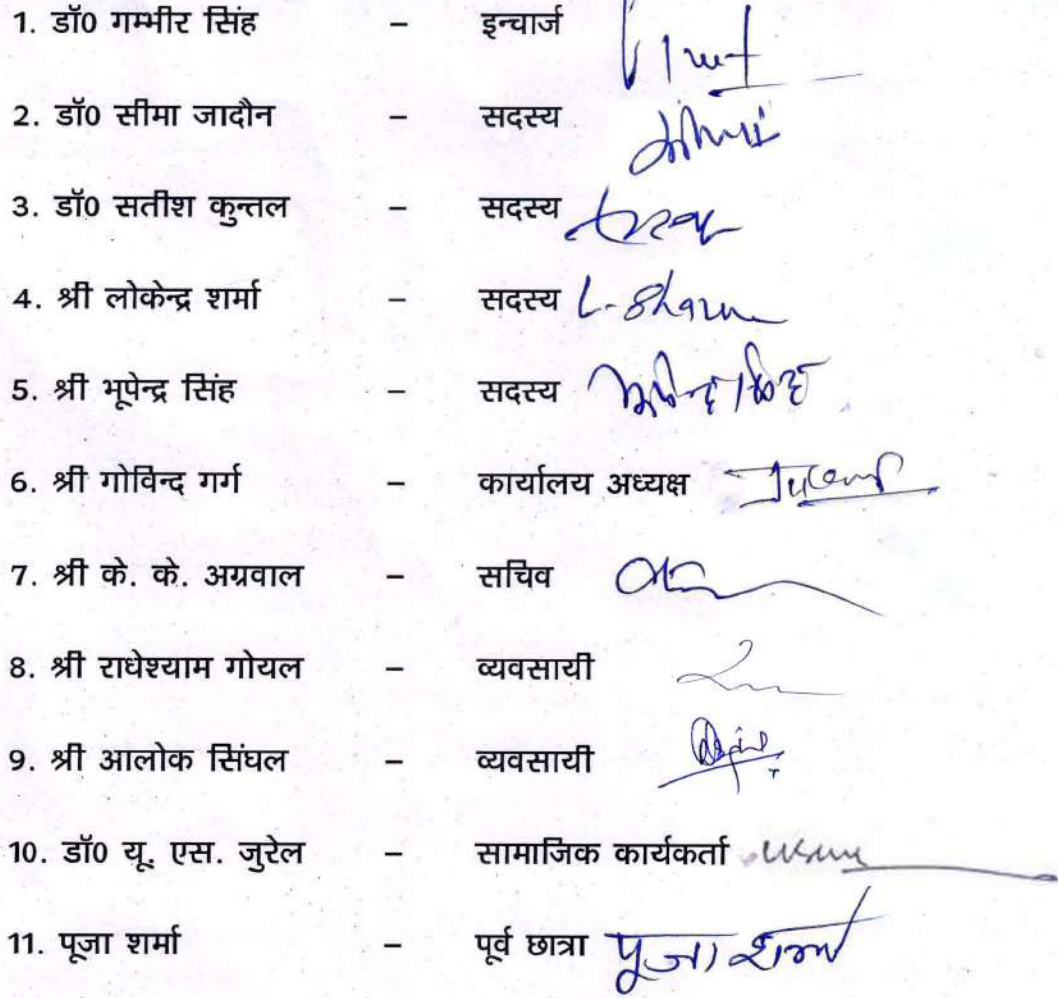 1. डॉ0 गम्भीर सिंह – इन्चार्ज
2. डॉ0 सीमा जादौन – सदस्य
3. डॉ0 सतीश कुन्तल – सदस्य
4. श्री लोकेन्द्र शर्मा – सदस्य L. Sharma
5. श्री भूपेन्द्र सिंह – सदस्य भूपेन्द्र सिंह
6. श्री गोविन्द गर्ग – कार्यालय अध्यक्ष
7. श्री के. के. अग्रवाल – सचिव
8. श्री राधेश्याम गोयल – व्यवसायी
9. श्री आलोक सिंघल – व्यवसायी
10. डॉ0 यू. एस. जुरेल – सामाजिक कार्यकर्ता
11. पूजा शर्मा – पूर्व छात्रा पूजा शर्मा